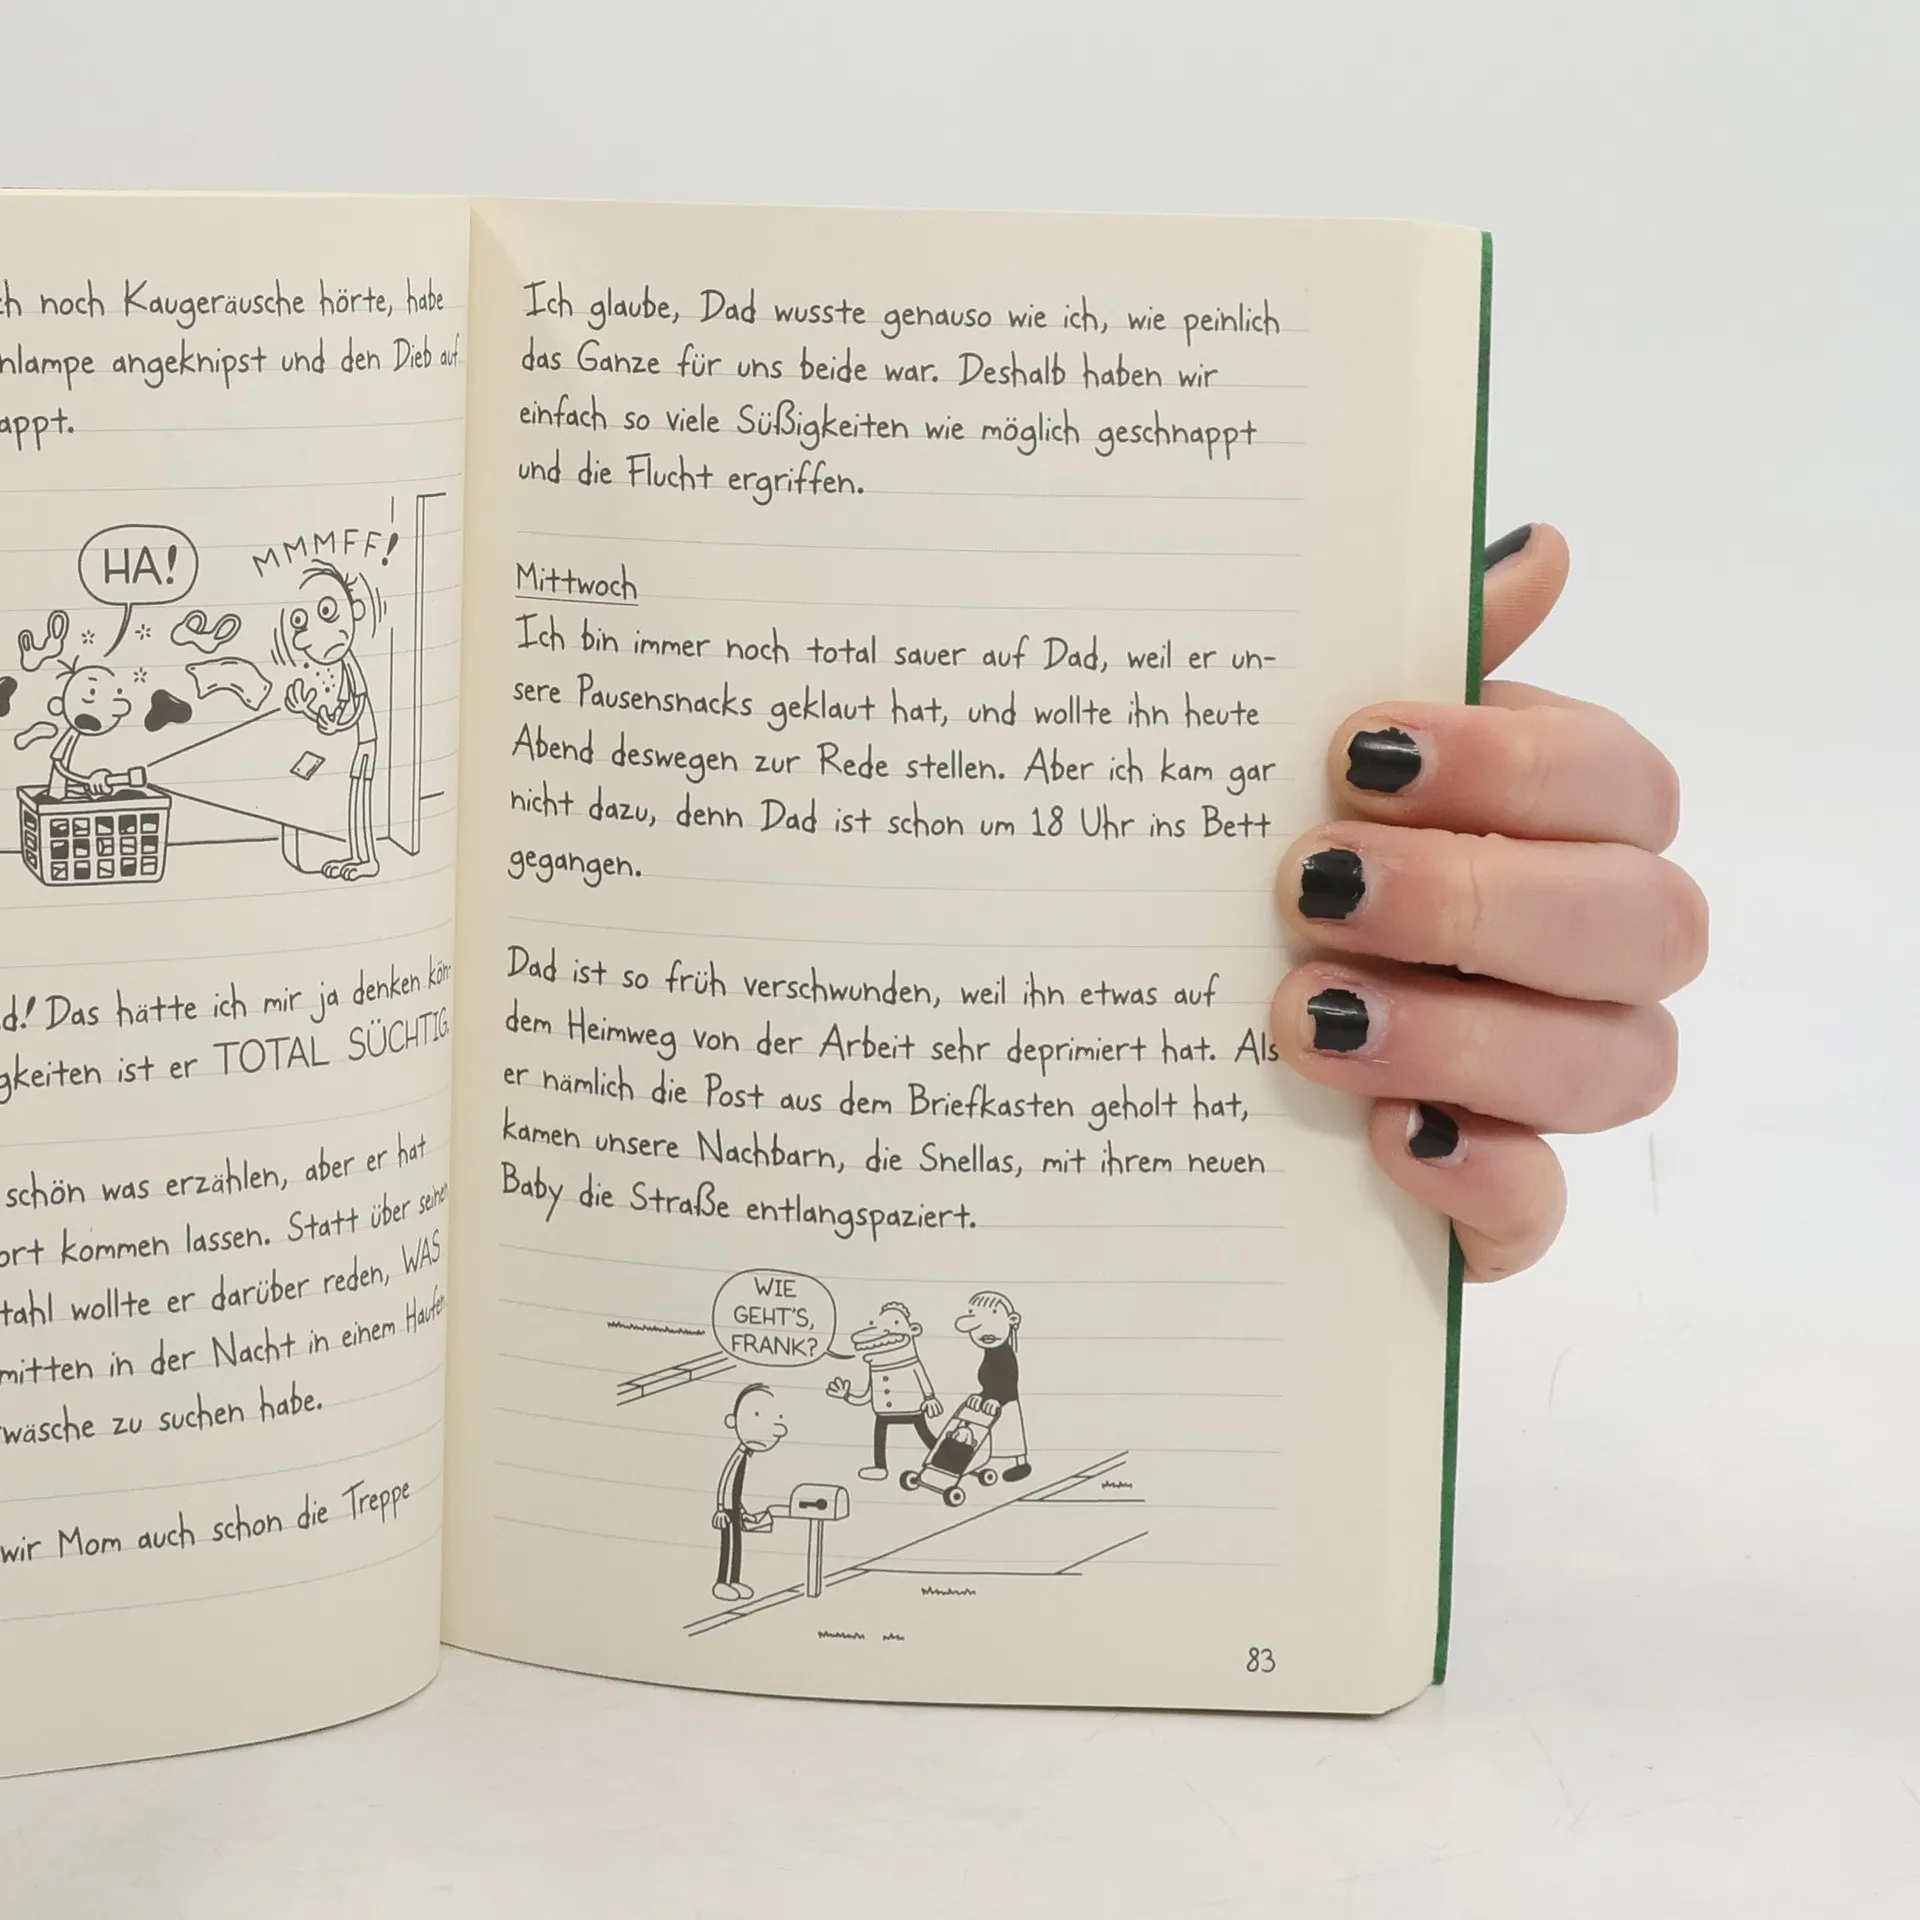 noch Kaugeräusche hörte, habe
angeknipst und den Dieb auf
HA!
MMMFF!
Das hätte ich mir ja denken
ist er TOTAL SÜCHTIG.
schön was erzählen, aber er hat
kommen lassen. Statt über seinen
wollte er darüber reden, WAS
mitten in der Nacht in einem Haufen
zu suchen habe.
wir Mom auch schon die Treppe
Ich glaube, Dad wusste genauso wie ich, wie peinlich
das Ganze für uns beide war. Deshalb haben wir
einfach so viele Süßigkeiten wie möglich geschnappt
und die Flucht ergriffen.
Mittwoch
Ich bin immer noch total sauer auf Dad, weil er un-
sere Pausensnacks geklaut hat, und wollte ihn heute
Abend deswegen zur Rede stellen. Aber ich kam gar
nicht dazu, denn Dad ist schon um 18 Uhr ins Bett
gegangen.
Dad ist so früh verschwunden, weil ihn etwas auf
dem Heimweg von der Arbeit sehr deprimiert hat. Als
er nämlich die Post aus dem Briefkasten geholt hat,
kamen unsere Nachbarn, die Snellas, mit ihrem neuen
Baby die Straße entlangspaziert.
WIE
GEHT'S,
FRANK?
83